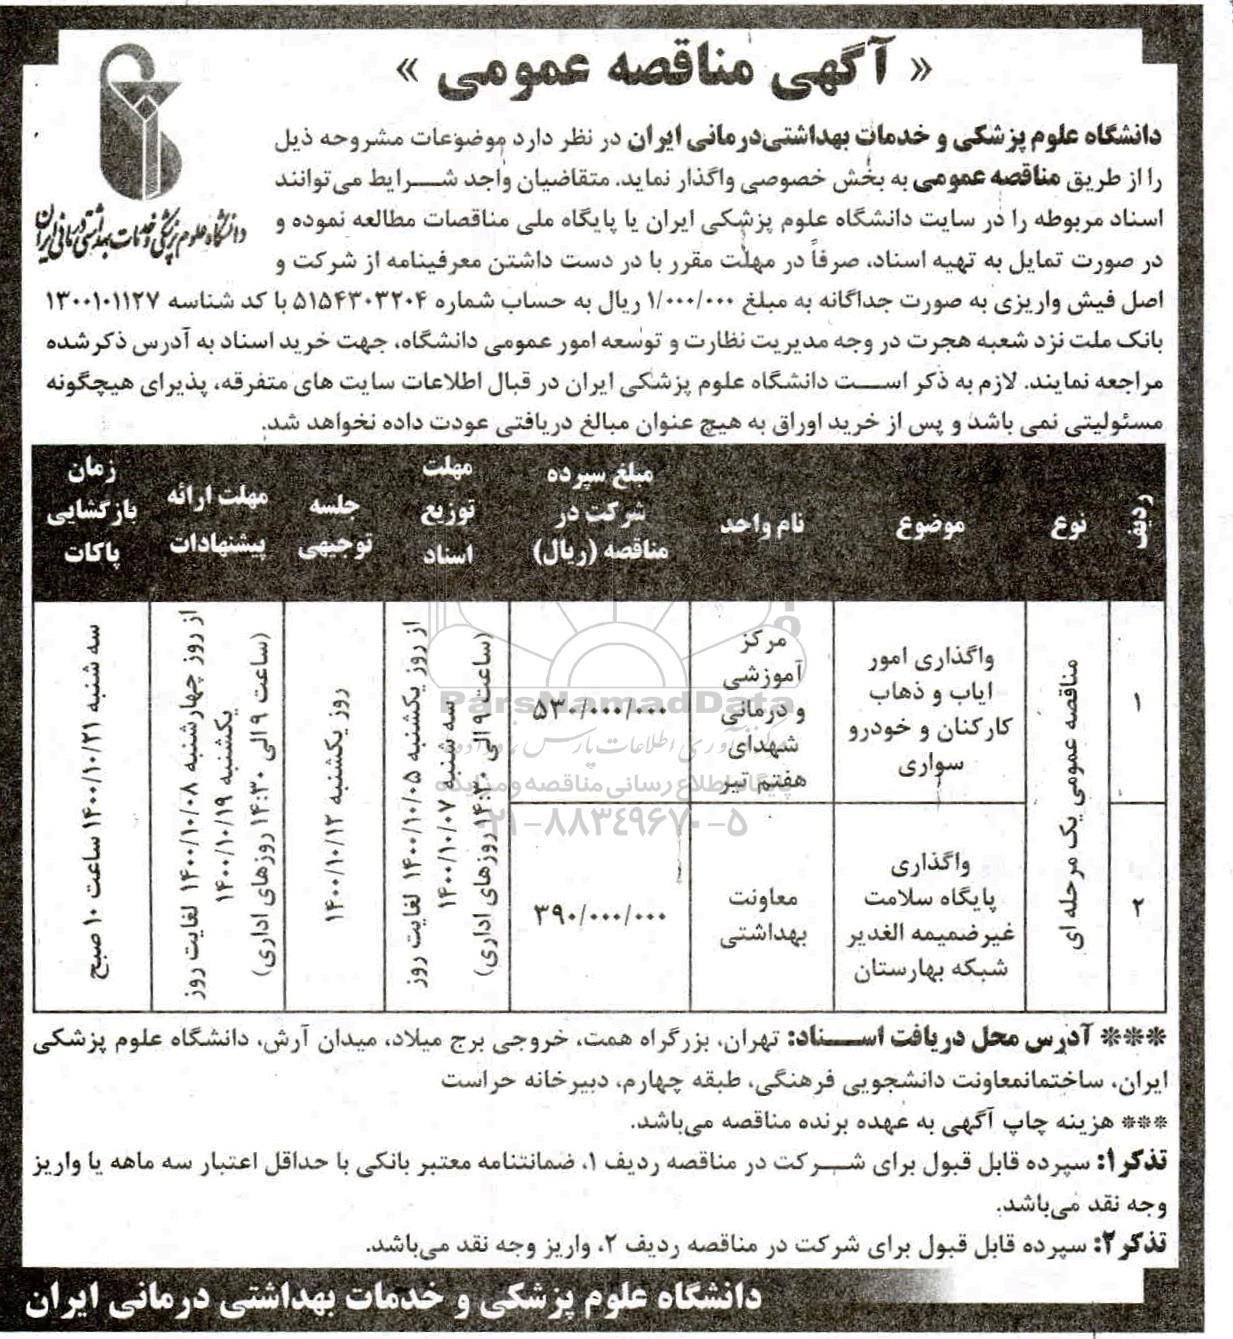 « آگهی مناقصه عمومی »
دانشگاه علوم پزشکی و خدمات بهداشتی درمانی ایران
دانشگاه علوم پزشکی و خدمات بهداشتی‌درمانی ایران در نظر دارد موضوعات مشروحه ذیل
را از طریق مناقصه عمومی به بخش خصوصی واگذار نماید. متقاضیان واجد شرایط می‌توانند
اسناد مربوطه را در سایت دانشگاه علوم پزشکی ایران یا پایگاه ملی مناقصات مطالعه نموده و
در صورت تمایل به تهیه اسناد، صرفاً در مهلت مقرر با در دست داشتن معرفینامه از شرکت و
اصل فیش واریزی به صورت جداگانه به مبلغ ۱/۰۰۰/۰۰۰ ریال به حساب شماره ۵۱۵۴۳۰۳۲۰۴ با کد شناسه ۱۳۰۰۱۰۱۱۲۷
بانک ملت نزد شعبه هجرت در وجه مدیریت نظارت و توسعه امور عمومی دانشگاه، جهت خرید اسناد به آدرس ذکرشده
مراجعه نمایند. لازم به ذکر است دانشگاه علوم پزشکی ایران در قبال اطلاعات سایت های متفرقه، پذیرای هیچگونه
مسئولیتی نمی باشد و پس از خرید اوراق به هیچ عنوان مبالغ دریافتی عودت داده نخواهد شد.
ردیف
نوع
موضوع
نام واحد
مبلغ سپرده
شرکت در
مناقصه (ریال)
مهلت
توزیع
اسناد
جلسه
توجیهی
مهلت ارائه
پیشنهادات
زمان
بازگشایی
پاکات
۱
مناقصه عمومی یک مرحله ای
واگذاری امور
ایاب و ذهاب
کارکنان و خودرو
سواری
مرکز
آموزشی
و درمانی
شهدای
هفتم تیر
۵۳۰/۰۰۰/۰۰۰
از روز یکشنبه ۱۴۰۰/۱۰/۰۵ لغایت روز
سه شنبه ۱۴۰۰/۱۰/۰۷
(ساعت ۹ الی ۱۴:۳۰ روزهای اداری)
روز یکشنبه ۱۴۰۰/۱۰/۱۲
از روز چهارشنبه ۱۴۰۰/۱۰/۰۸ لغایت روز
یکشنبه ۱۴۰۰/۱۰/۱۹
(ساعت ۹ الی ۱۴:۳۰ روزهای اداری)
سه شنبه ۱۴۰۰/۱۰/۲۱ ساعت ۱۰ صبح
۲
واگذاری
پایگاه سلامت
غیرضمیمه الغدیر
شبکه بهارستان
معاونت
بهداشتی
۳۹۰/۰۰۰/۰۰۰
ParsNamadData
پایگاه اطلاع رسانی مناقصه و مزایده
۰۲۱-۸۸۳۴۹۶۷۰-۵
*** آدرس محل دریافت اسناد: تهران، بزرگراه همت، خروجی برج میلاد، میدان آرش، دانشگاه علوم پزشکی
ایران، ساختمانمعاونت دانشجویی فرهنگی، طبقه چهارم، دبیرخانه حراست
*** هزینه چاپ آگهی به عهده برنده مناقصه می‌باشد.
تذکر۱: سپرده قابل قبول برای شرکت در مناقصه ردیف ۱، ضمانتنامه معتبر بانکی با حداقل اعتبار سه ماهه یا واریز
وجه نقد می‌باشد.
تذکر۲: سپرده قابل قبول برای شرکت در مناقصه ردیف ۲، واریز وجه نقد می‌باشد.
دانشگاه علوم پزشکی و خدمات بهداشتی درمانی ایران